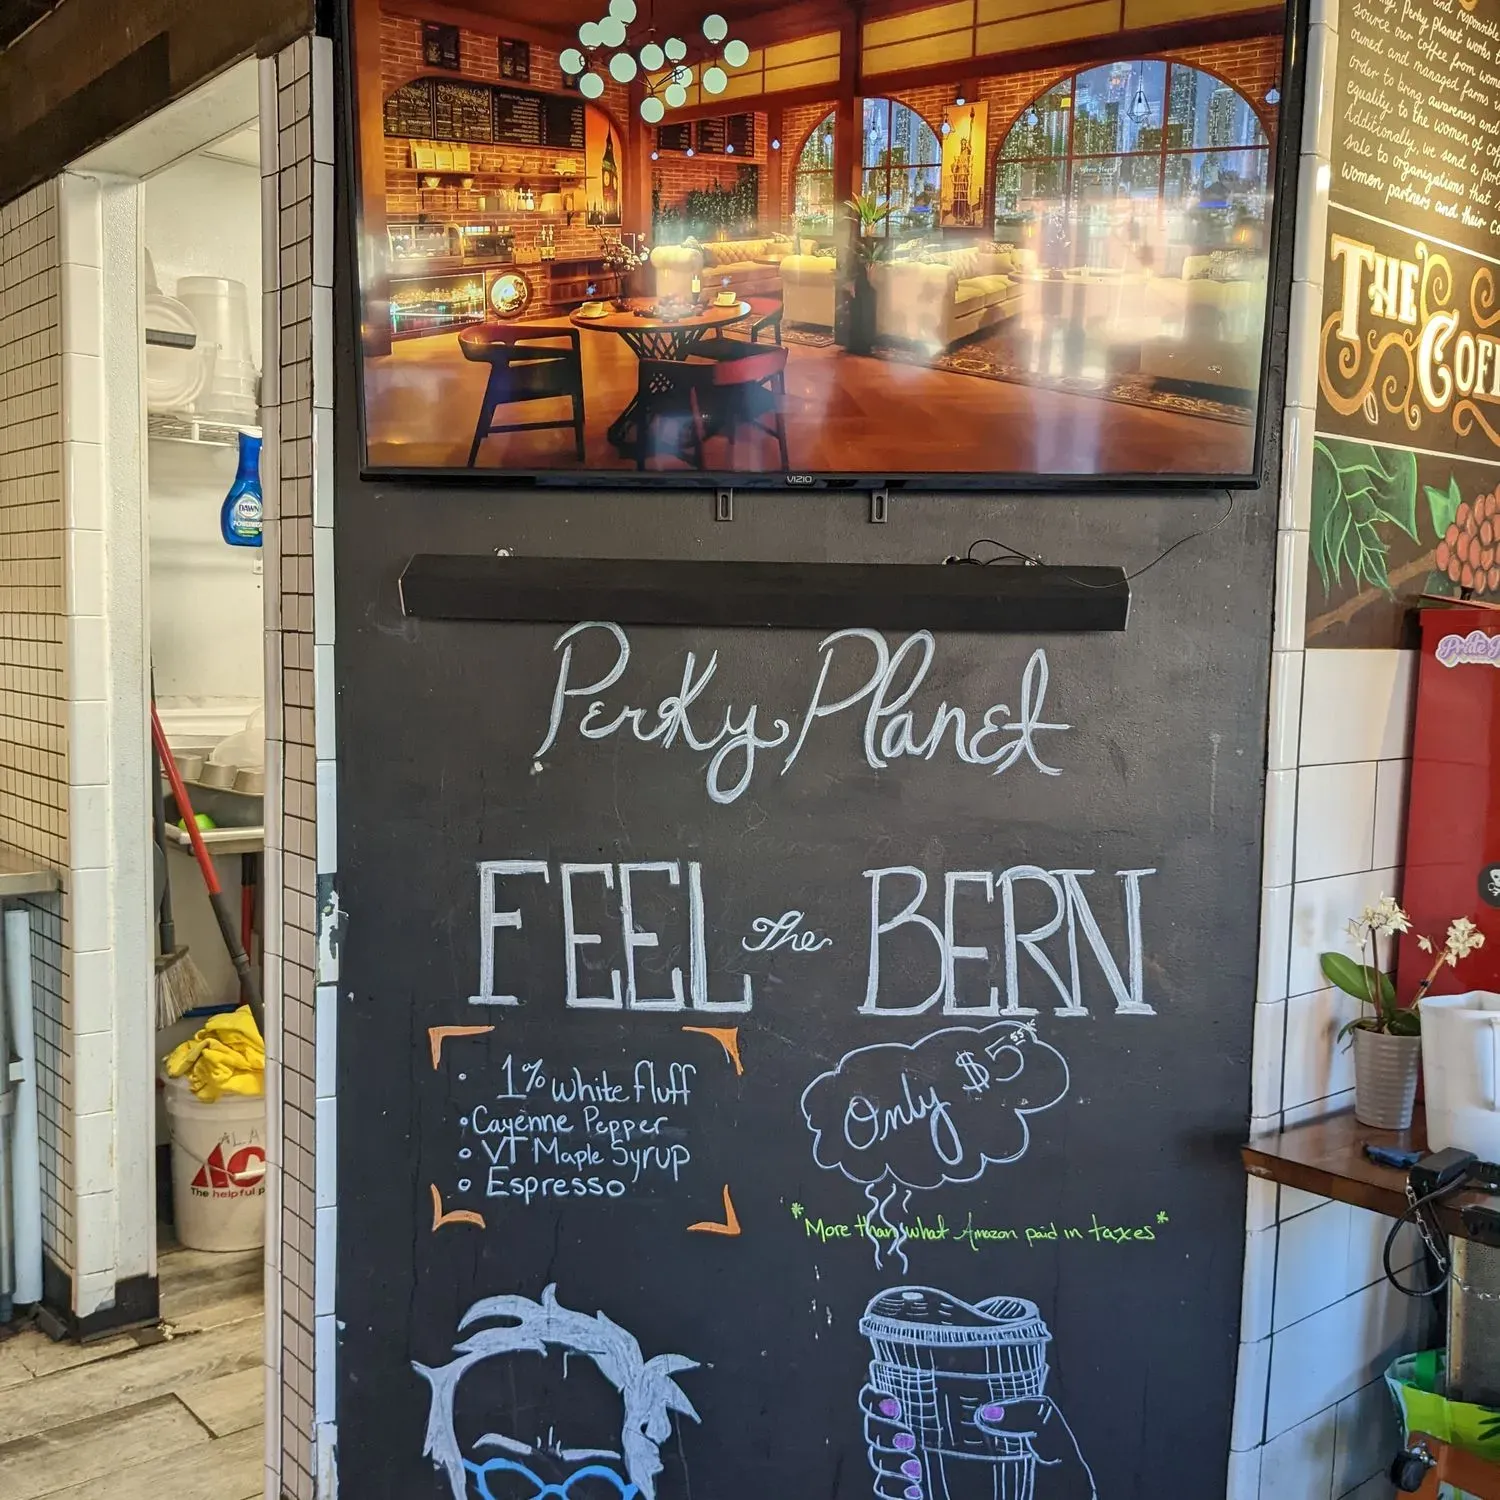 and responsible
Perky Planet works t
source our coffee from wom
owned and managed farms i
order to bring awareness and
equality to the women of cof
Additionally, we send a port
sale to organizations that
women partners and their co
THE
COFF
VIZIO
DAWN
POWERWASH
Pride
Perky Planet
FEEL the BERN
• 1% White fluff
• Cayenne Pepper
• VT Maple Syrup
• Espresso
Only $5.55*
*More than what Amazon paid in taxes*
AC
The helpful p